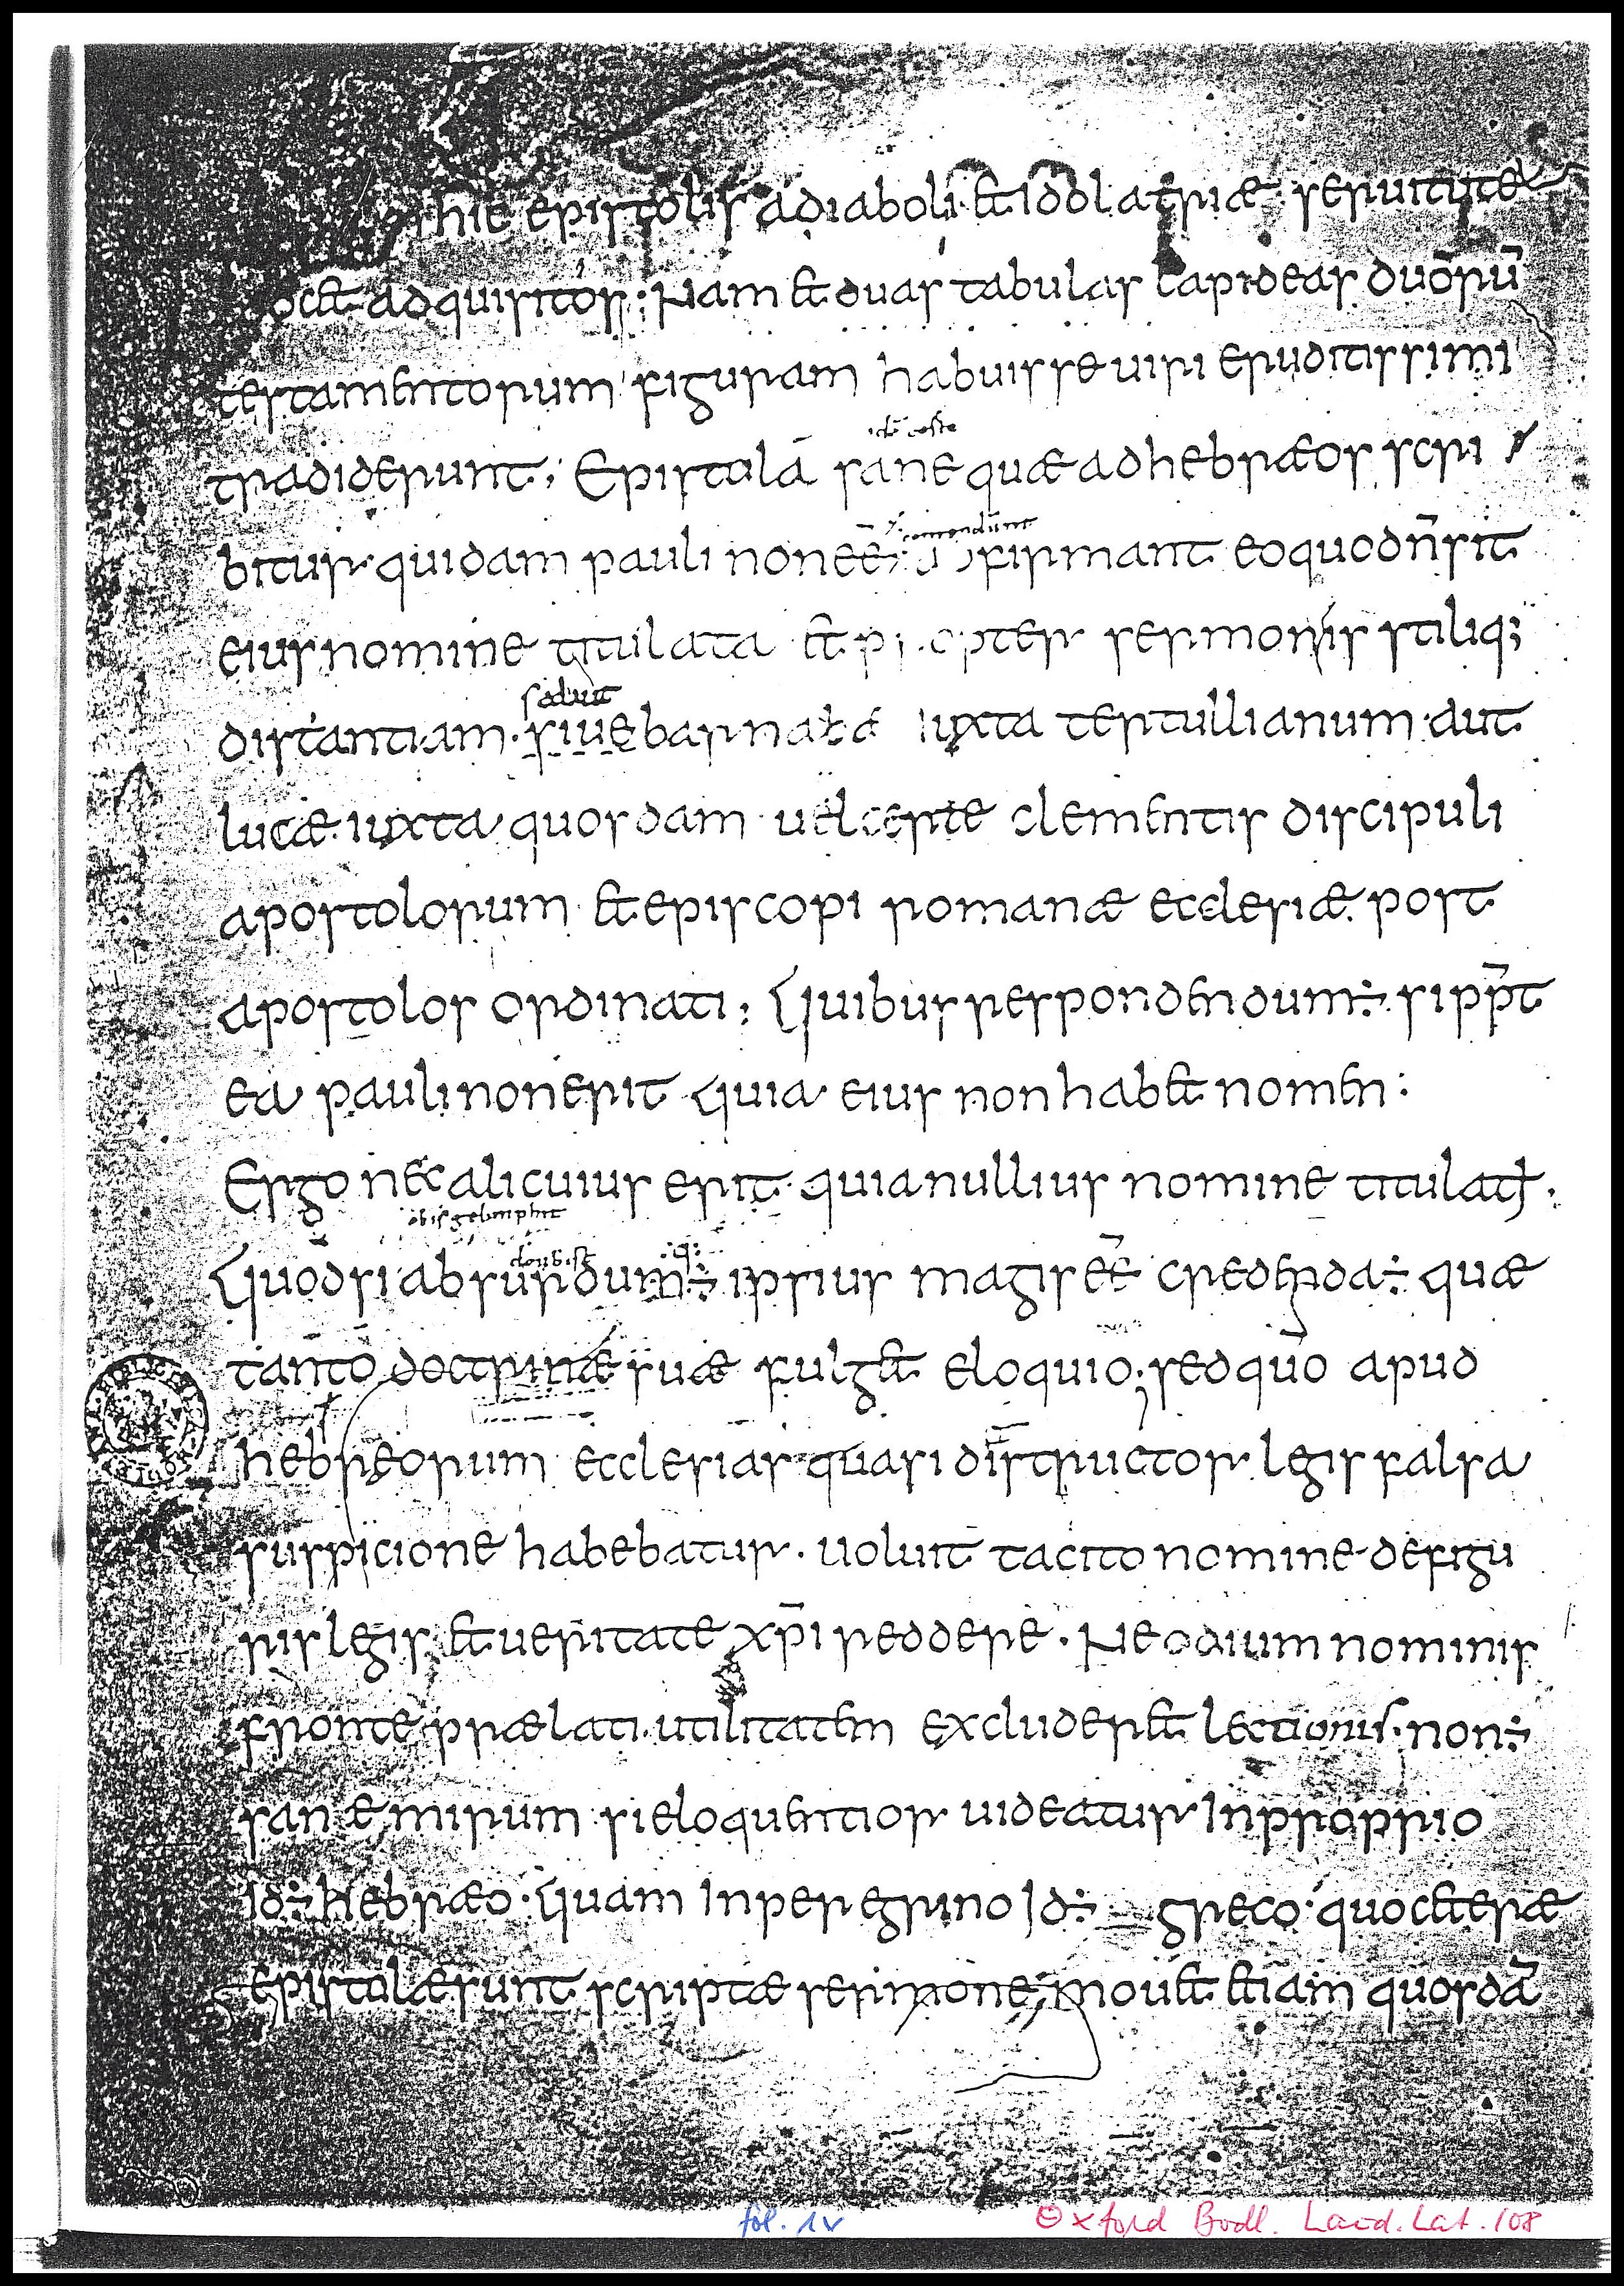 hic epistolis adiaboli · & idolatriæ · seruitute
oc& adquisitos : Nam & duas tabulas lapideas duorū
testamentorum figuram habuisse uiri eruditissimi
tradiderunt ; Epistolā sane quæ adhebræos scri
bitur quidam pauli non eē firmant eoquod n̄ sit
eius nomine titulata & propter sermonis stiliq;
saluit
distantiam · siue barnabæ iuxta tertullianum · aut
lucæ · iuxta quosdam · uel certe clementis discipuli
apostolorum · & episcopi romanæ ecclesiæ · post
apostolos ordinati ; Quibus respondendum ÷ si pp̄t
ea pauli non erit quia eius non hab& nomen :
Ergo nec alicuius erit · quia nullius nomine titulat̄ ·
Quodsi absurdum ÷ ipsius magis eē credenda ÷ quæ
tanto doctrinæ suæ fulg& eloquio ; sed quō apud
hebreorum ecclesias quasi distructor legis falsa
suspicione habebatur · uoluit tacito nomine defigu
ris legis & ueritate xp̄i reddere · Ne odium nominis
fronte prælati · utilitatem excluder& lectionis · non ÷
sanæ mirum si eloquentior uideatur In proprio
Id ÷ hebræo · Quam In peregrino Id ÷ greco · quo c&eræ
epistolæ sunt scriptæ sermone mou& &iam quosdā
fol. 1v
Oxford Bodl. Laud. Lat. 108